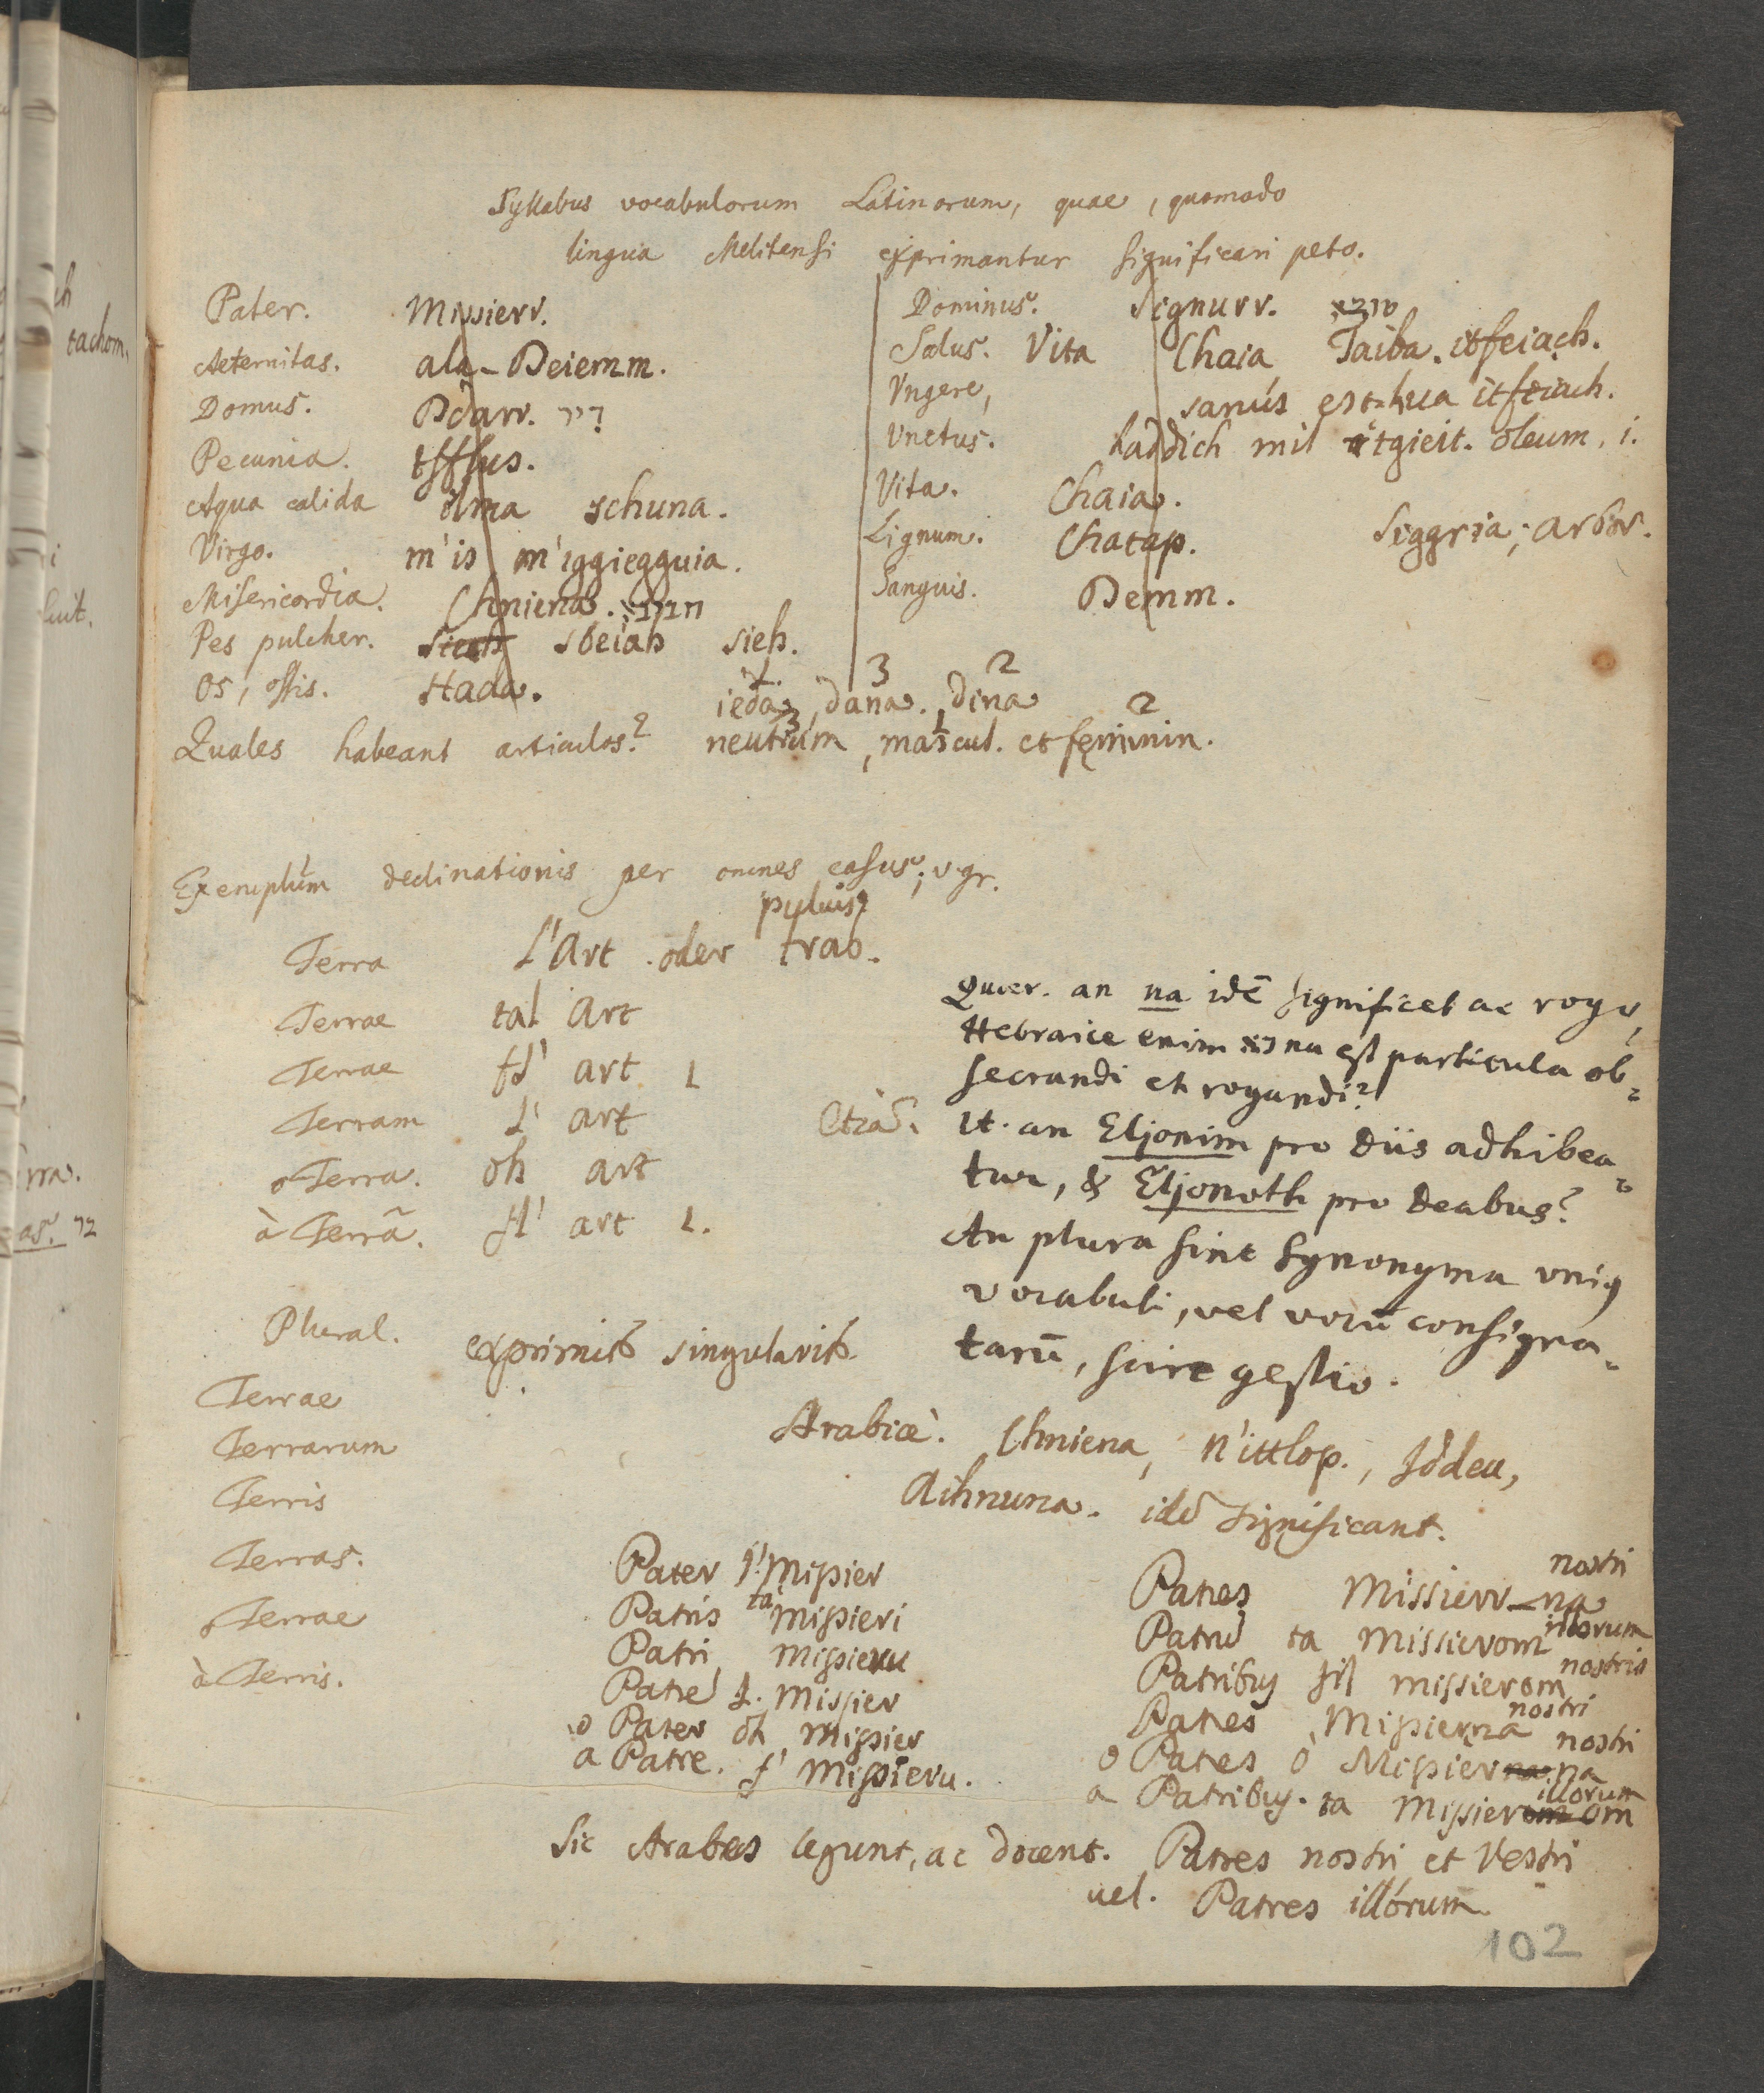 Syllabus vocabulorum Latinorum, quae, quomodo
lingua Melitensi exprimantur significari peto.
Pater. Missierr.
Aeternitas. ala-Deiemm.
Domus. Ddarr. דיר
Pecunia. tfflus.
Aqua calida ilma schuna.
Virgo. m'is m'iggiegguia.
Misericordia. Chniena. חנינא
Pes pulcher. sbeiah sieh.
Os, ossis. Hada.
Dominus. Signurr. טיבא
Salus. Vita Chaia Taiba. itfeiach.
Ungere, sanus est hua itfeiach.
Unctus. haddich mil itgieit. oleum. i.
Vita. Chaia.
Lignum. Chatap. Siggria; arbor.
Sanguis. Demm.
1. 3 2
ieda, dana. dina
3 1 2
Quales habeant articulos? neutrum, mascul. et feminin.
Exemplum declinationis per omnes casus; v.gr.
pulvis
Terra L'Art oder trab.
Terrae tal Art
Terrae fl' art L
Terram L' art
o Terra. oh art
à Terrâ. fl' art L.
Plural. exprimit singularit
Terrae
Terrarum
Terris
Terras.
o Terrae
à Terris.
Quaer. an na idē significet ac rogo,
Hebraice enim נא na est particula ob=
secrandi et rogandi?
Etiā. It. an Eljonim pro diis adhibea=
tur, & Eljonoth pro deabus?
An plura sint Synonyma uniq
vocabuli, vel vocū consigna=
tarū, scire gestio.
Arabicè. Chniena, n'ittlop., Jddeu,
Aihnuna. idē significant.
Pater l' Missier
Patris ta Missieri
Patri Missieru
Patrē L. Missier
o Pater oh Missier
a Patre. f' Missieru.
Patres Missierr-na nostri
Patrū ta Missierom illorum
Patribus fil missierom nostris
Patres Missierna nostri
o Patres ò Missier na nostri
a Patribus. ta Missier om illorum
Sic Arabes legunt, ac docent. Patres nostri et Vestri
vel. Patres illorum.
102